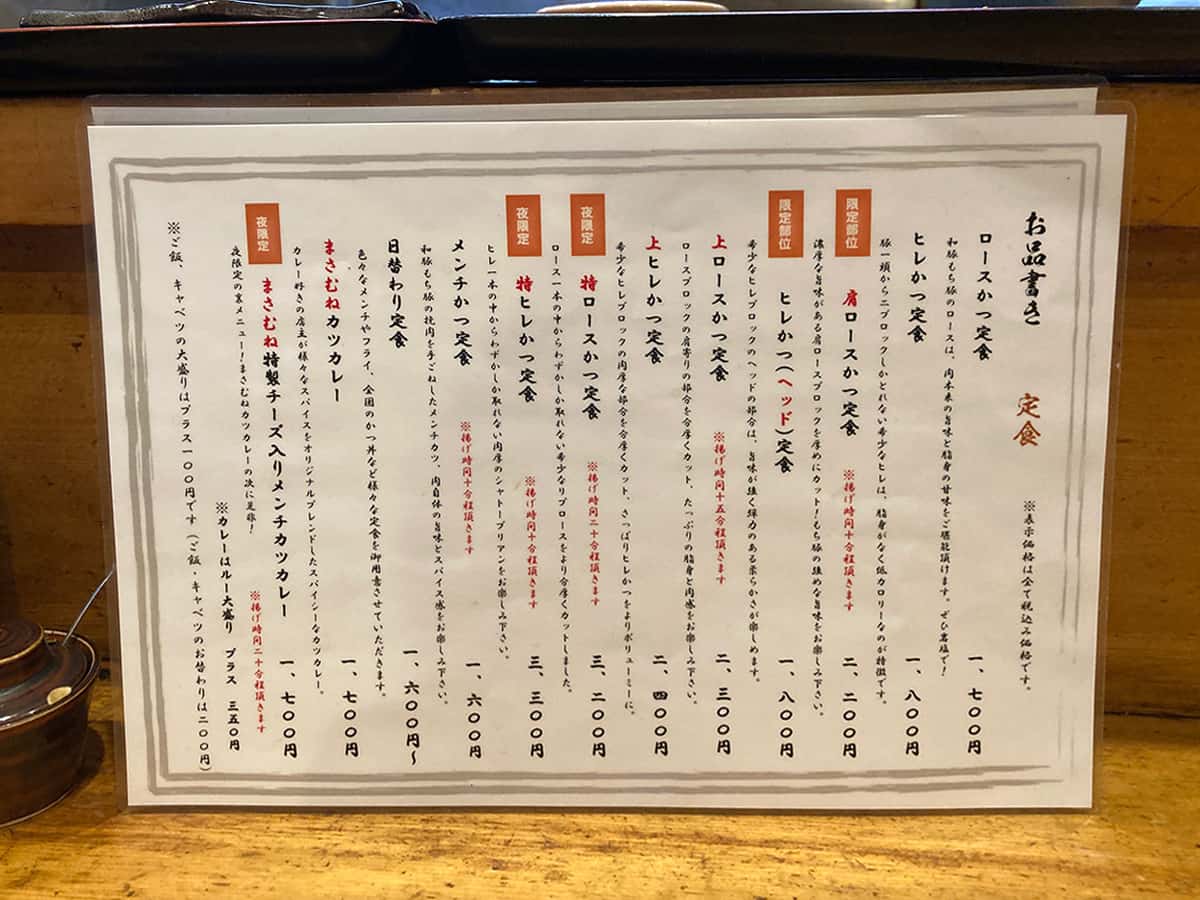 お品書き 定食 ※表示価格は全て税込み価格です。
ロースかつ定食 一、七〇〇円
和豚もち豚のロースは、肉本来の旨味と脂身の甘味をご堪能頂けます。ぜひ岩塩で！
ヒレかつ定食 一、八〇〇円
豚一頭から二ブロックしかとれない希少なヒレは、脂身がなく低カロリーなのが特徴です。
限定部位 肩ロースかつ定食 ※揚げ時间十分程頂きます 二、二〇〇円
濃厚な旨味がある肩ロースブロックを厚めにカット！もち豚の強めな旨味をお楽しみ下さい。
限定部位 ヒレかつ（ヘッド）定食 一、八〇〇円
希少なヒレブロックのヘッドの部分は、旨味が強く弾力のある柔らかさが楽しめます。
上ロースかつ定食 ※揚げ時间十五分程頂きます 二、三〇〇円
ロースブロックの肩寄りの部分を分厚くカット、たっぷりの脂身と肉感をお楽しみ下さい。
上ヒレかつ定食 二、四〇〇円
希少なヒレブロックの肉厚な部分を分厚くカット、さっぱりヒレかつをよりボリューミーに。
夜限定 特ロースかつ定食 ※揚げ時间二十分程頂きます 三、二〇〇円
ロース一本の中からわずかしか取れない希少なリブロースをより分厚くカットしました。
夜限定 特ヒレかつ定食 ※揚げ時间十分程頂きます 三、三〇〇円
ヒレ一本の中からわずかしか取れない肉厚のシャトーブリアンをお楽しみ下さい。
メンチかつ定食 ※揚げ時间十分程頂きます 一、六〇〇円
和豚もち豚の挽肉を手ごねしたメンチカツ、肉自体の旨味とスパイス感をお楽しみ下さい。
日替わり定食 一、六〇〇円〜
色々なメンチやフライ、全国のかつ丼など様々な定食を御用意させていただきます。
まさむねカツカレー 一、七〇〇円
カレー好きの店主が様々なスパイスをオリジナルブレンドしたスパイシーなカツカレー。
夜限定 まさむね特製チーズ入りメンチカツカレー 一、七〇〇円
夜限定の裏メニュー！まさむねカツカレーの次に是非！ ※揚げ時间二十分程頂きます
※カレーはルー大盛り プラス 三五〇円
※ご飯、キャベツの大盛りはプラス一〇〇円です（ご飯・キャベツのお替わりは二〇〇円）